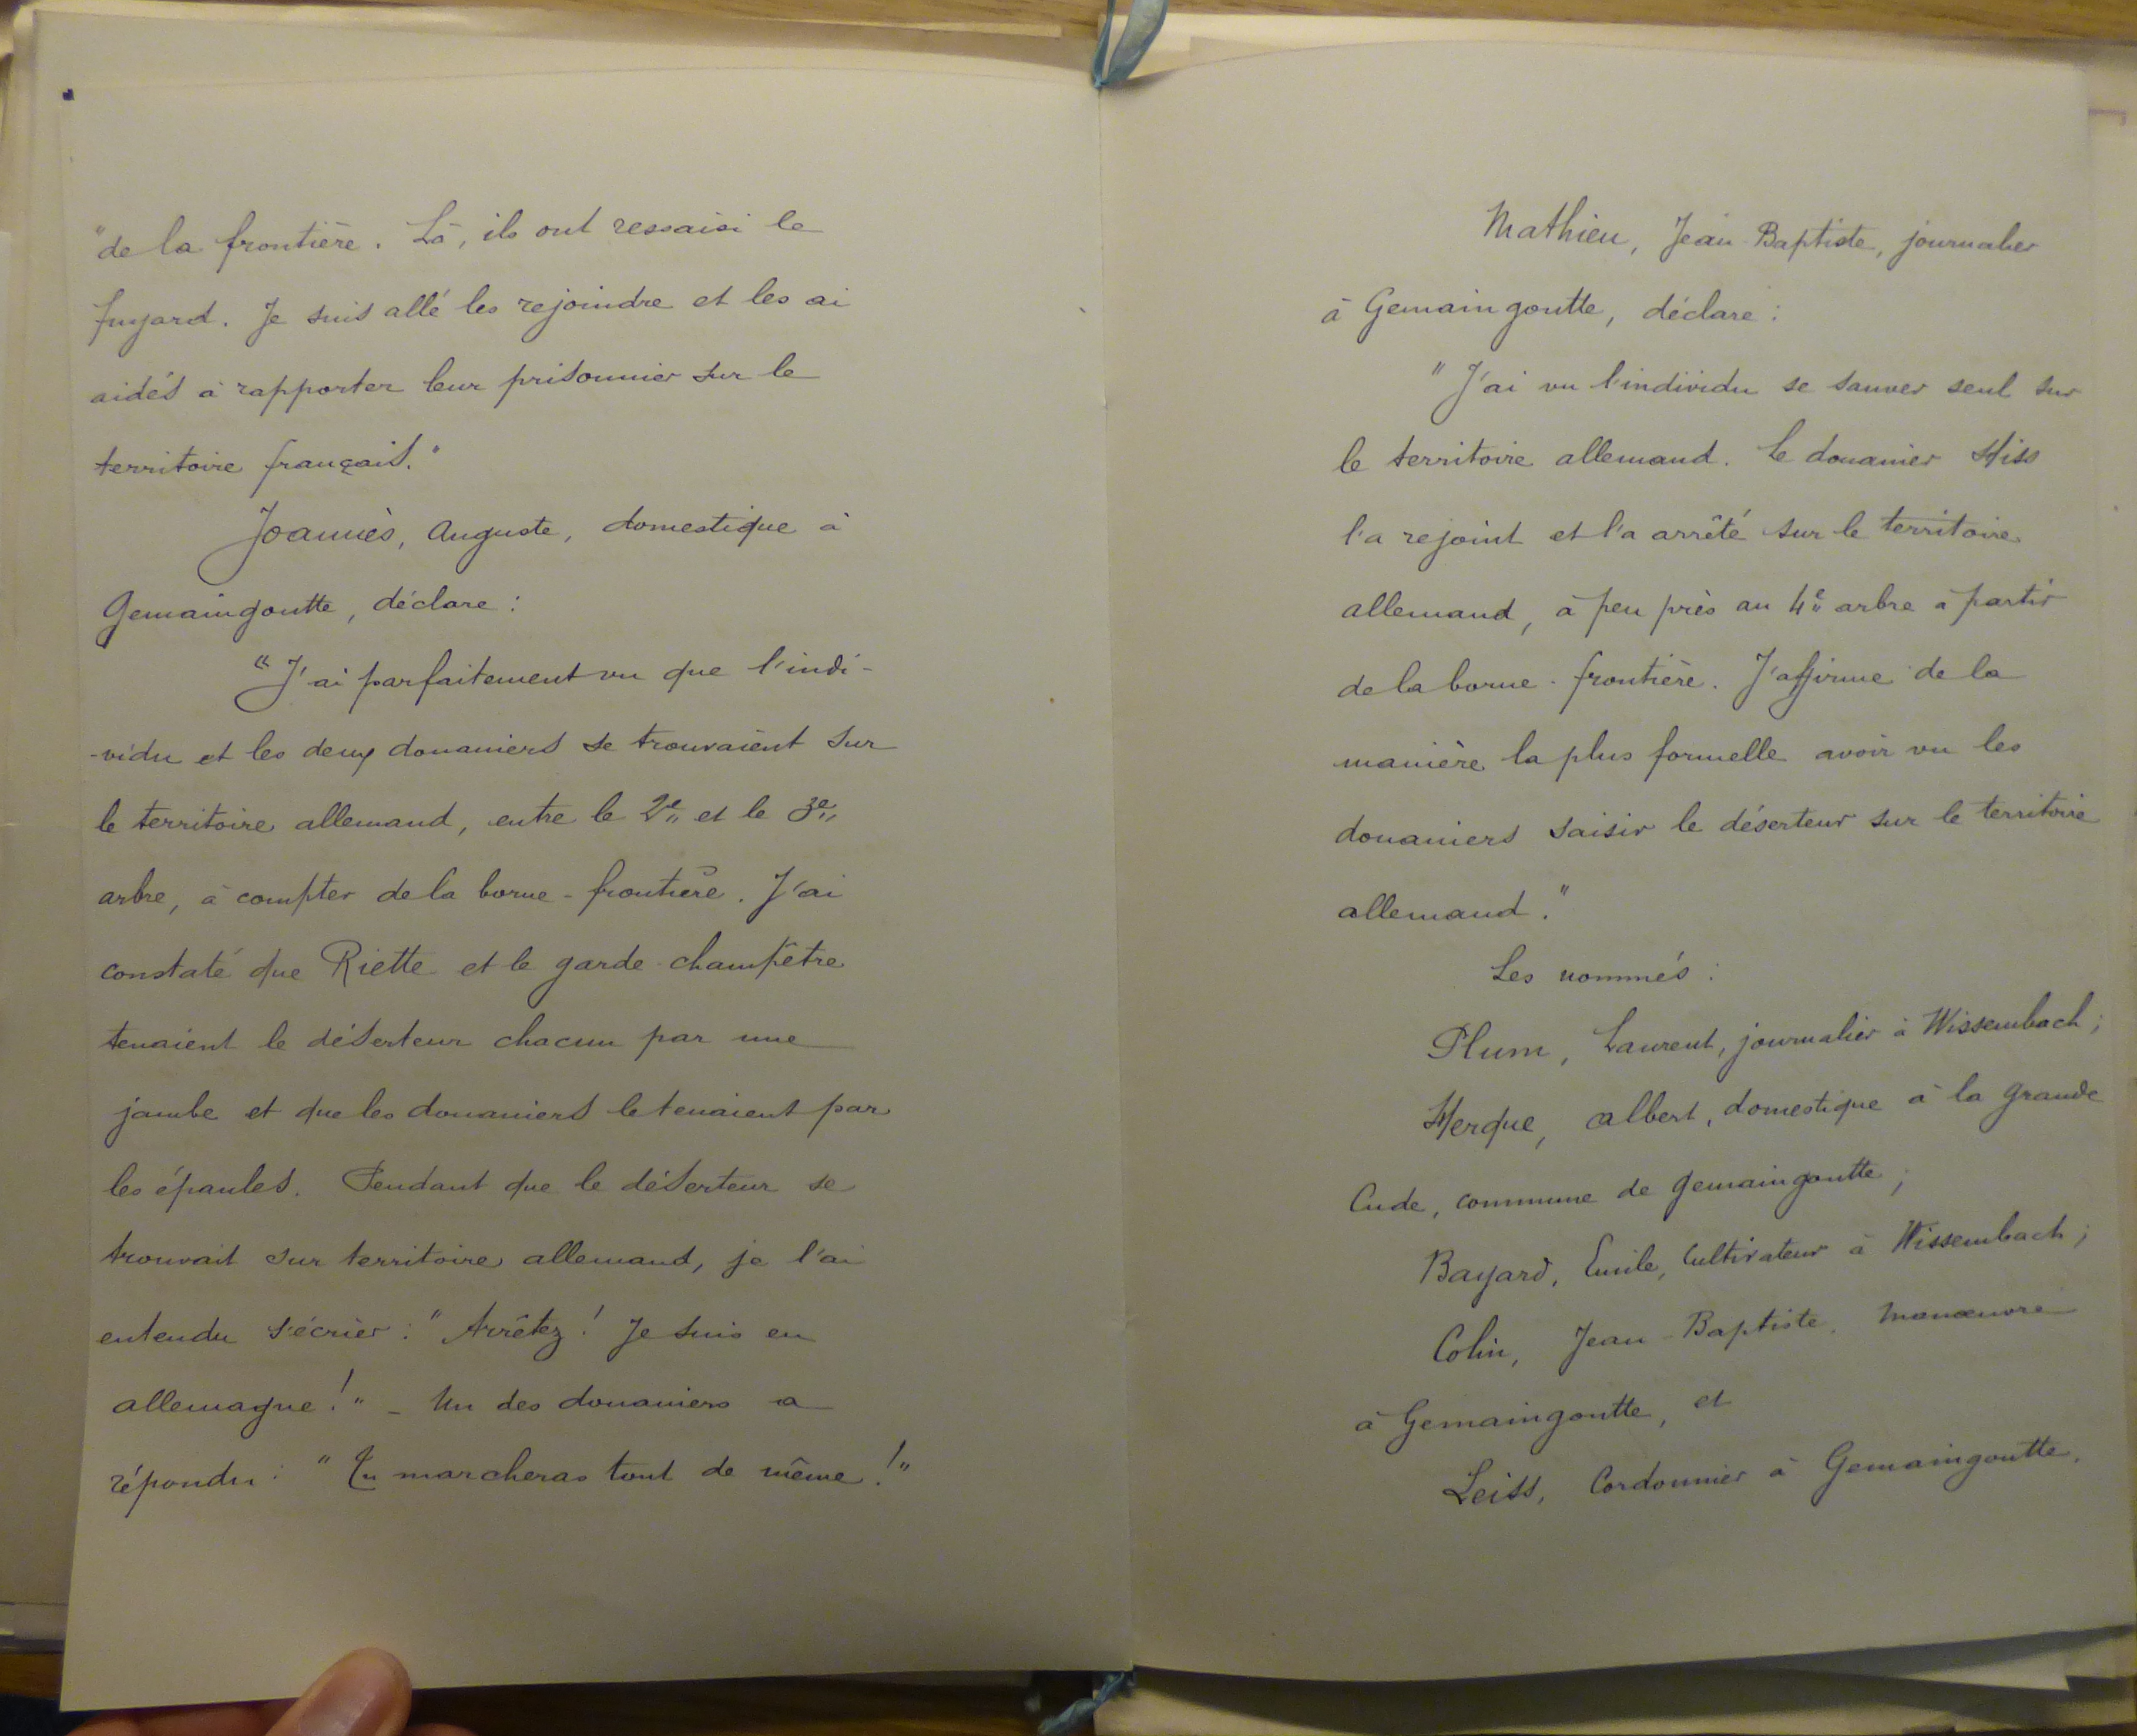 "de la frontière. Là, ils ont ressaisi le
fuyard. Je suis allé les rejoindre et les ai
aidés à rapporter leur prisonnier sur le
territoire français."
Joannès, Auguste, domestique à
Gemaingoutte, déclare :
"J'ai parfaitement vu que l'indi-
-vidu et les deux douaniers se trouvaient sur
le territoire allemand, entre le 2e et le 3e
arbre, à compter de la borne-frontière. J'ai
constaté que Riette et le garde-champêtre
tenaient le déserteur chacun par une
jambe et que les douaniers le tenaient par
les épaules. Pendant que le déserteur se
trouvait sur territoire allemand, je l'ai
entendu s'écrier : "Arrêtez ! Je suis en
allemagne !" - Un des douaniers a
répondu : "Tu marcheras tout de même !"
Mathieu, Jean-Baptiste, journalier
à Gemaingoutte, déclare :
"J'ai vu l'individu se sauver seul sur
le territoire allemand. Le douanier Hiss
l'a rejoint et l'a arrêté sur le territoire
allemand, à peu près au 4e arbre à partir
de la borne-frontière. J'affirme de la
manière la plus formelle avoir vu les
douaniers saisir le déserteur sur le territoire
allemand."
Les nommés :
Plum, Laurent, journalier à Wissembach ;
Herque, Albert, domestique à la grande
Cude, commune de Gemaingoutte ;
Bayard, Emile, Cultivateur à Wissembach ;
Colin, Jean-Baptiste, manœuvre
à Gemaingoutte, et
Leiss, Cordonnier à Gemaingoutte,